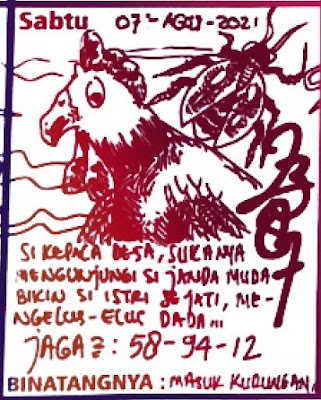 Sabtu 07-AGU-2021
SI KEPALA DESA, SUKANYA
MENGUNJUNGI SI JANDA MUDA
BIKIN SI ISTRI SEJATI, ME-
NGELUS-ELUS DADA...
JAGA2: 58-94-12
BINATANGNYA : MASUK KURUNGAN.